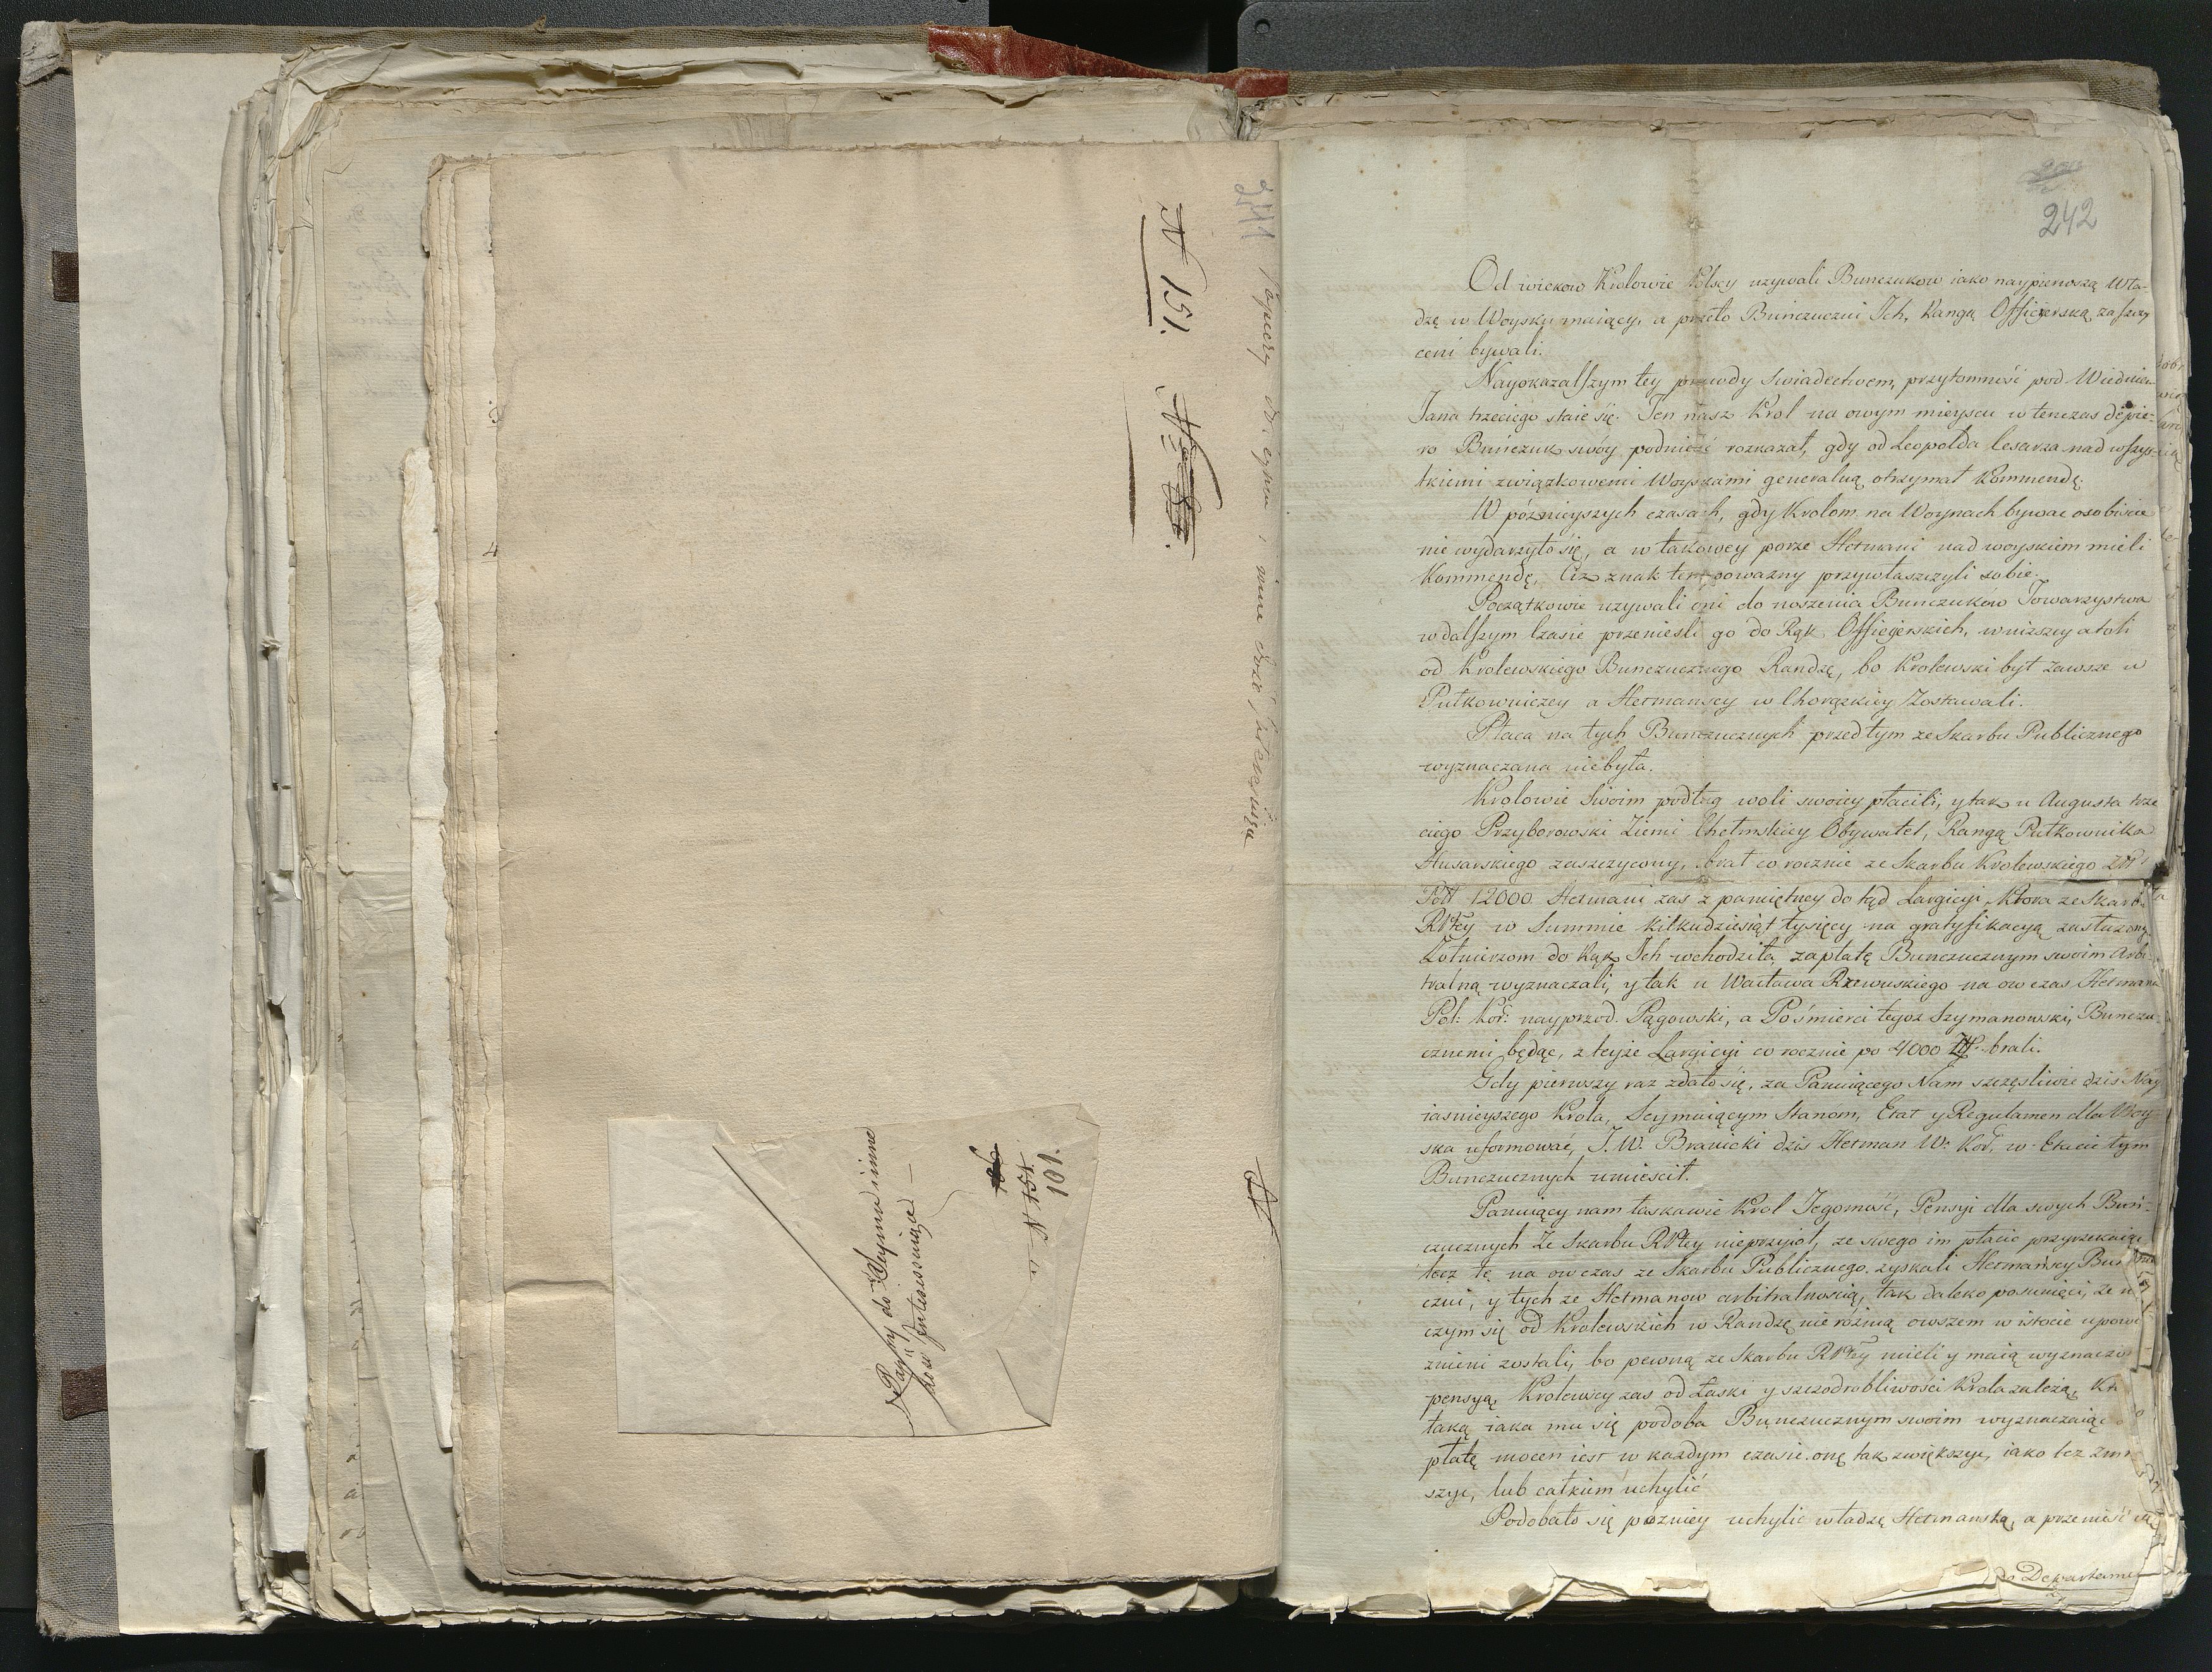 241
N 151.
Papiery do Seymu i inne
101.
242
Od wiekow Krolowie Polscy uzywali Bunczukow iako naypierwszą Wła-
dzę w Woysku maiący, a przeto Bunczuczni Ich, Rangą Officyerską zaszczy
ceni bywali.
Nayokazalszym tey prawdy swiadectwem, przytomność pod Wiedniem
Jana trzeciego staie się. Ten nasz Krol na owym mieyscu w tenczas dopie-
ro Buńczuk swóy podnieść rozkazał, gdy od Leopolda Cesarza nad wszys-
tkiemi związkowemi Woyskami generalną otrzymał Kommendę.
W póznieyszych czasach, gdy Krolom na Woynach bywac osobiscie
nie wydarzyło się, a w takowey porze Hetmani nad woyskiem mieli
Kommendę, Ciz znak ten powazny przywłaszczyli sobie.
Początkowie uzywali oni do noszenia Bunczuków Towarzystwa
w dalszym Czasie przeniesli go do Rąk Officyerskich, w nizszey atoli
od Krolewskiego Bunczucznego Randze, bo Krolewski był zawsze w
Pułkowniczey a Hetmanscy w Chorązkiey zostawali.
Płaca na tych Bunczucznych przed tym ze Skarbu Publicznego
wyznaczana niebyła.
Krolowie Swoim podług woli swoiey płacili, y tak u Augusta trze
ciego Przyborowski Ziemi Chełmskiey Obywatel, Rangą Pułkownika
Husarskiego zaszczycony, brał co rocznie ze Skarbu Krolewskiego
12000 Hetmani zas z pamiętney do tąd Largicyi, Ktora ze Skarbu
Rptey w Summie kilkudziesiąt tysięcy na gratyfikacyą zasłuzonym
Zołnierzom do Rąk Ich wchodziła, zapłatę Bunczucznym swoim Arbi-
tralną wyznaczali, y tak u Wacława Rzewuskiego na ow czas Hetmana
Pol: Kor: nayprzod. Pągowski, a Pośmierci tegoz Szymanowski, Bunczu-
cznemi będąc, z teyze Largicyi co rocznie po 4000 Zł. brali.
Gdy pierwszy raz zdało się, za Panuiącego Nam szczęsliwie dzis Nay
iasnieyszego Krola, Seymuiącym Stanom, Etat y Regulamen dla Woy-
ska uformowac, J. W. Branicki dzis Hetman W: Kor: w Etacie tym
Bunczucznych umiescił.
Panuiący nam łaskawie Krol Jegomość, Pensyi dla swych Buń-
czucznych Ze Skarbu Rptey nieprzyiął, ze swego im płacic przyrzekaiąc
lecz tę na ow czas ze Skarbu Publicznego zyskali Hetmańscy Bun
czni, y tych ze Hetmanow arbitralnoscią, tak daleko posunięci, ze n
czym się od Krolewskich w Randze nie róznią owszem w istocie upowa
znieni zostali, bo pewną ze Skarbu Rptey mieli y maią wyznaczo
pensyą, Krolewscy zas od Łaski y szczodrobliwości Krola zalezą, Kt
taką iaka mu się podoba Bunczucznym swoim wyznaczaiąc
płatę mocen iest w kazdym czasie onę tak zwiększyc, iako tez zmn
szyc, lub całkiem uchylić
Podobało się pozniey uchylic władzę Hetmanską, a przenieść
Departamen